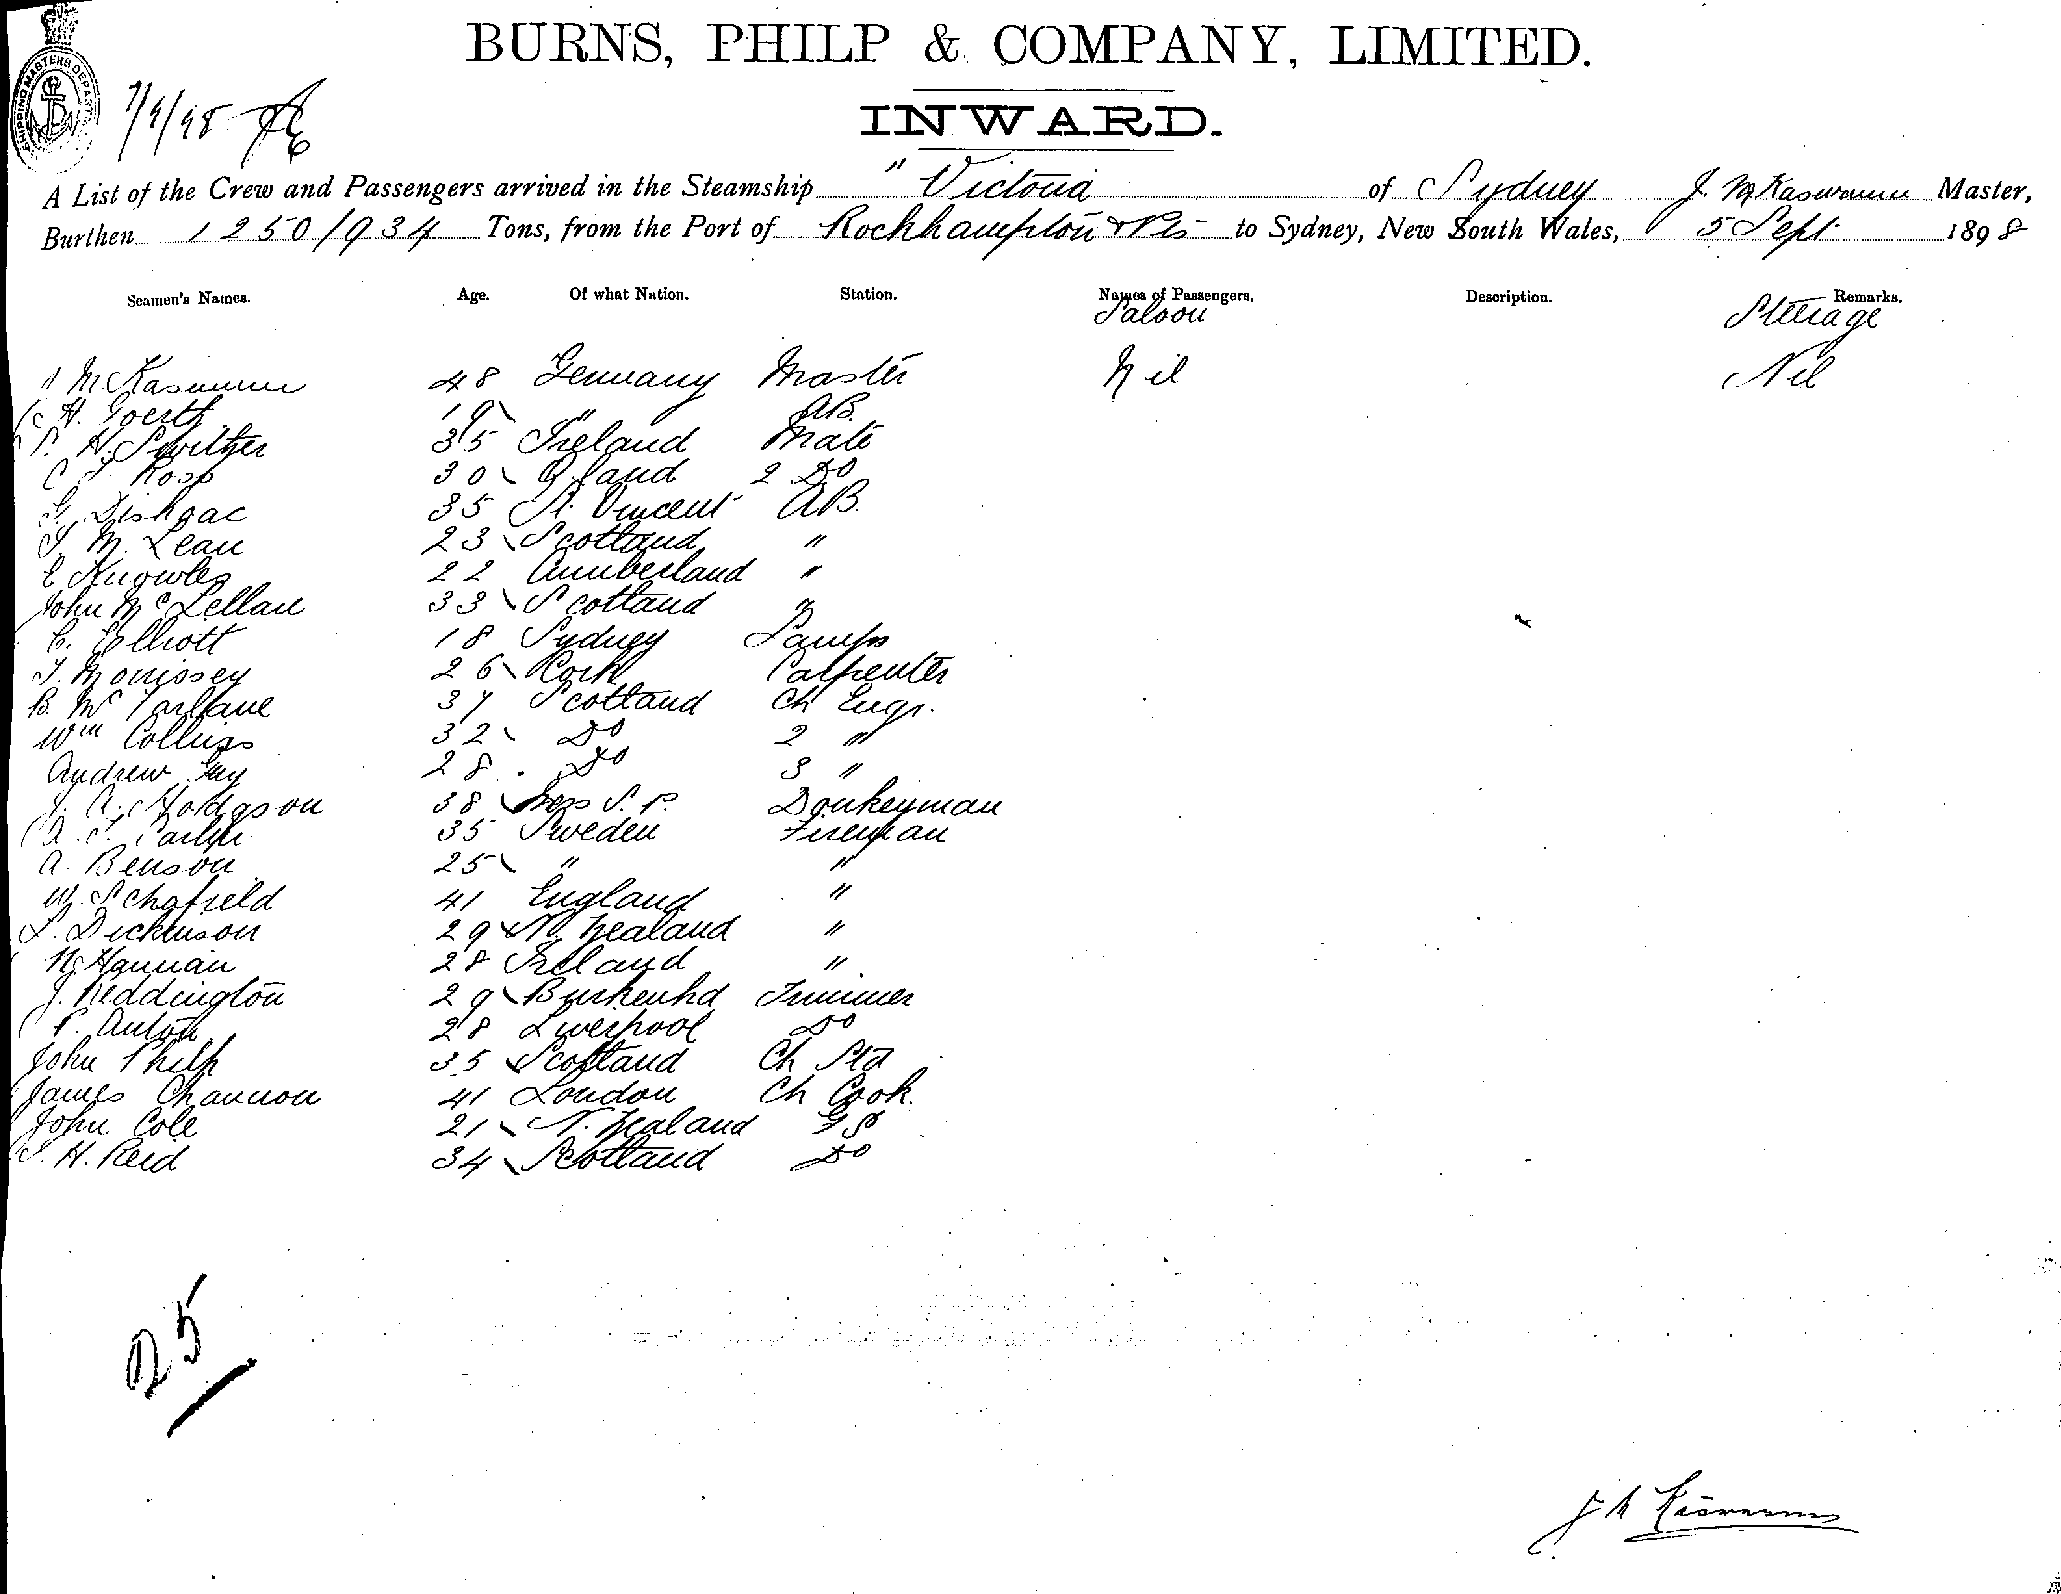 BURNS, PHILP & COMPANY, LIMITED.
INWARD.
7/9/98
A List of the Crew and Passengers arrived in the Steamship "Victoria of Sydney J. M Kasmann Master,
Burthen 1250/934 Tons, from the Port of Rockhampton & Pts to Sydney, New South Wales, 5 Sept. 1898
Seamen's Names. Age. Of what Nation. Station. Names of Passengers. Description. Remarks.
Saloon Steerage
48 Germany Master Nil Nil
H. Goerth 19 " AB.
H. Switzer 35 Ireland Mate
Ross 30 2 Do
G. 35 St. Vincent AB.
M. Lean 23 Scotland "
E Knowles 22 Cumberland "
John Mc Lellan 33 Scotland "
C. Elliott 18 Sydney Lamps
T. Morrissey 26 Cork Carpenter
B. Mc Farlane 37 Scotland Ch Engr.
Wm Collins 32 Do 2 "
Andrew Guy 28 Do 3 "
J. A. Hodgson 38 Donkeyman
35 Sweden Fireman
A. Benson 25 " "
W. Schofield 41 England "
L. Dickinson 29 N. Zealand "
Hannan 28 Ireland "
J. Reddington 29 Burkenhd Trimmer
P. Anton 28 Liverpool Do
John Philp 35 Scotland Ch Std
James Channon 41 London Ch Cook.
John Cole 21 N. Zealand GS
H. Reid 34 Scotland Do
25